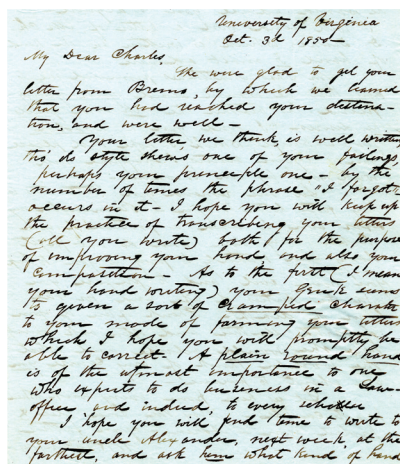 University of Virginia
Oct. 3d 1855
My Dear Charles,
We were glad to get your
letter from Bremo, by which we learned
that you had reached your destina-
tion, and were well -
Your letter we think, is well written
tho' its style shews one of your failings,
perhaps your principle one - by the
number of times the phrase "I forgot"
occurs in it - I hope you will keep up
the practice of transcribing your letters
(all you write) both for the purpose
of improving your hand, and also your
composition - As to the first (I mean
your hand writing) your Greek seems
to given a sort of cramped character
to your mode of forming your letters
which I hope you will promptly be
able to correct. A plain round hand
is of the utmost importance to one
who expects to do business in a Law-
office, and indeed, to every
I hope you will find time to write to
your uncle Alexander, next week, at the
farthest, and ask him what kind of hand